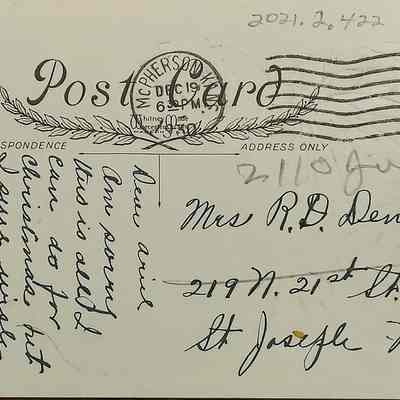 2021.2.422
Post Card
MCPHERSON
DEC 19
6 PM
Whitney Made
Worcester, Mass
SPONDENCE
ADDRESS ONLY
2110
Mrs R.D. Den
219 N. 21st St.
St Joseph
Dear
Am sorry
this is all I
can do for
Christmas but
I sure wish